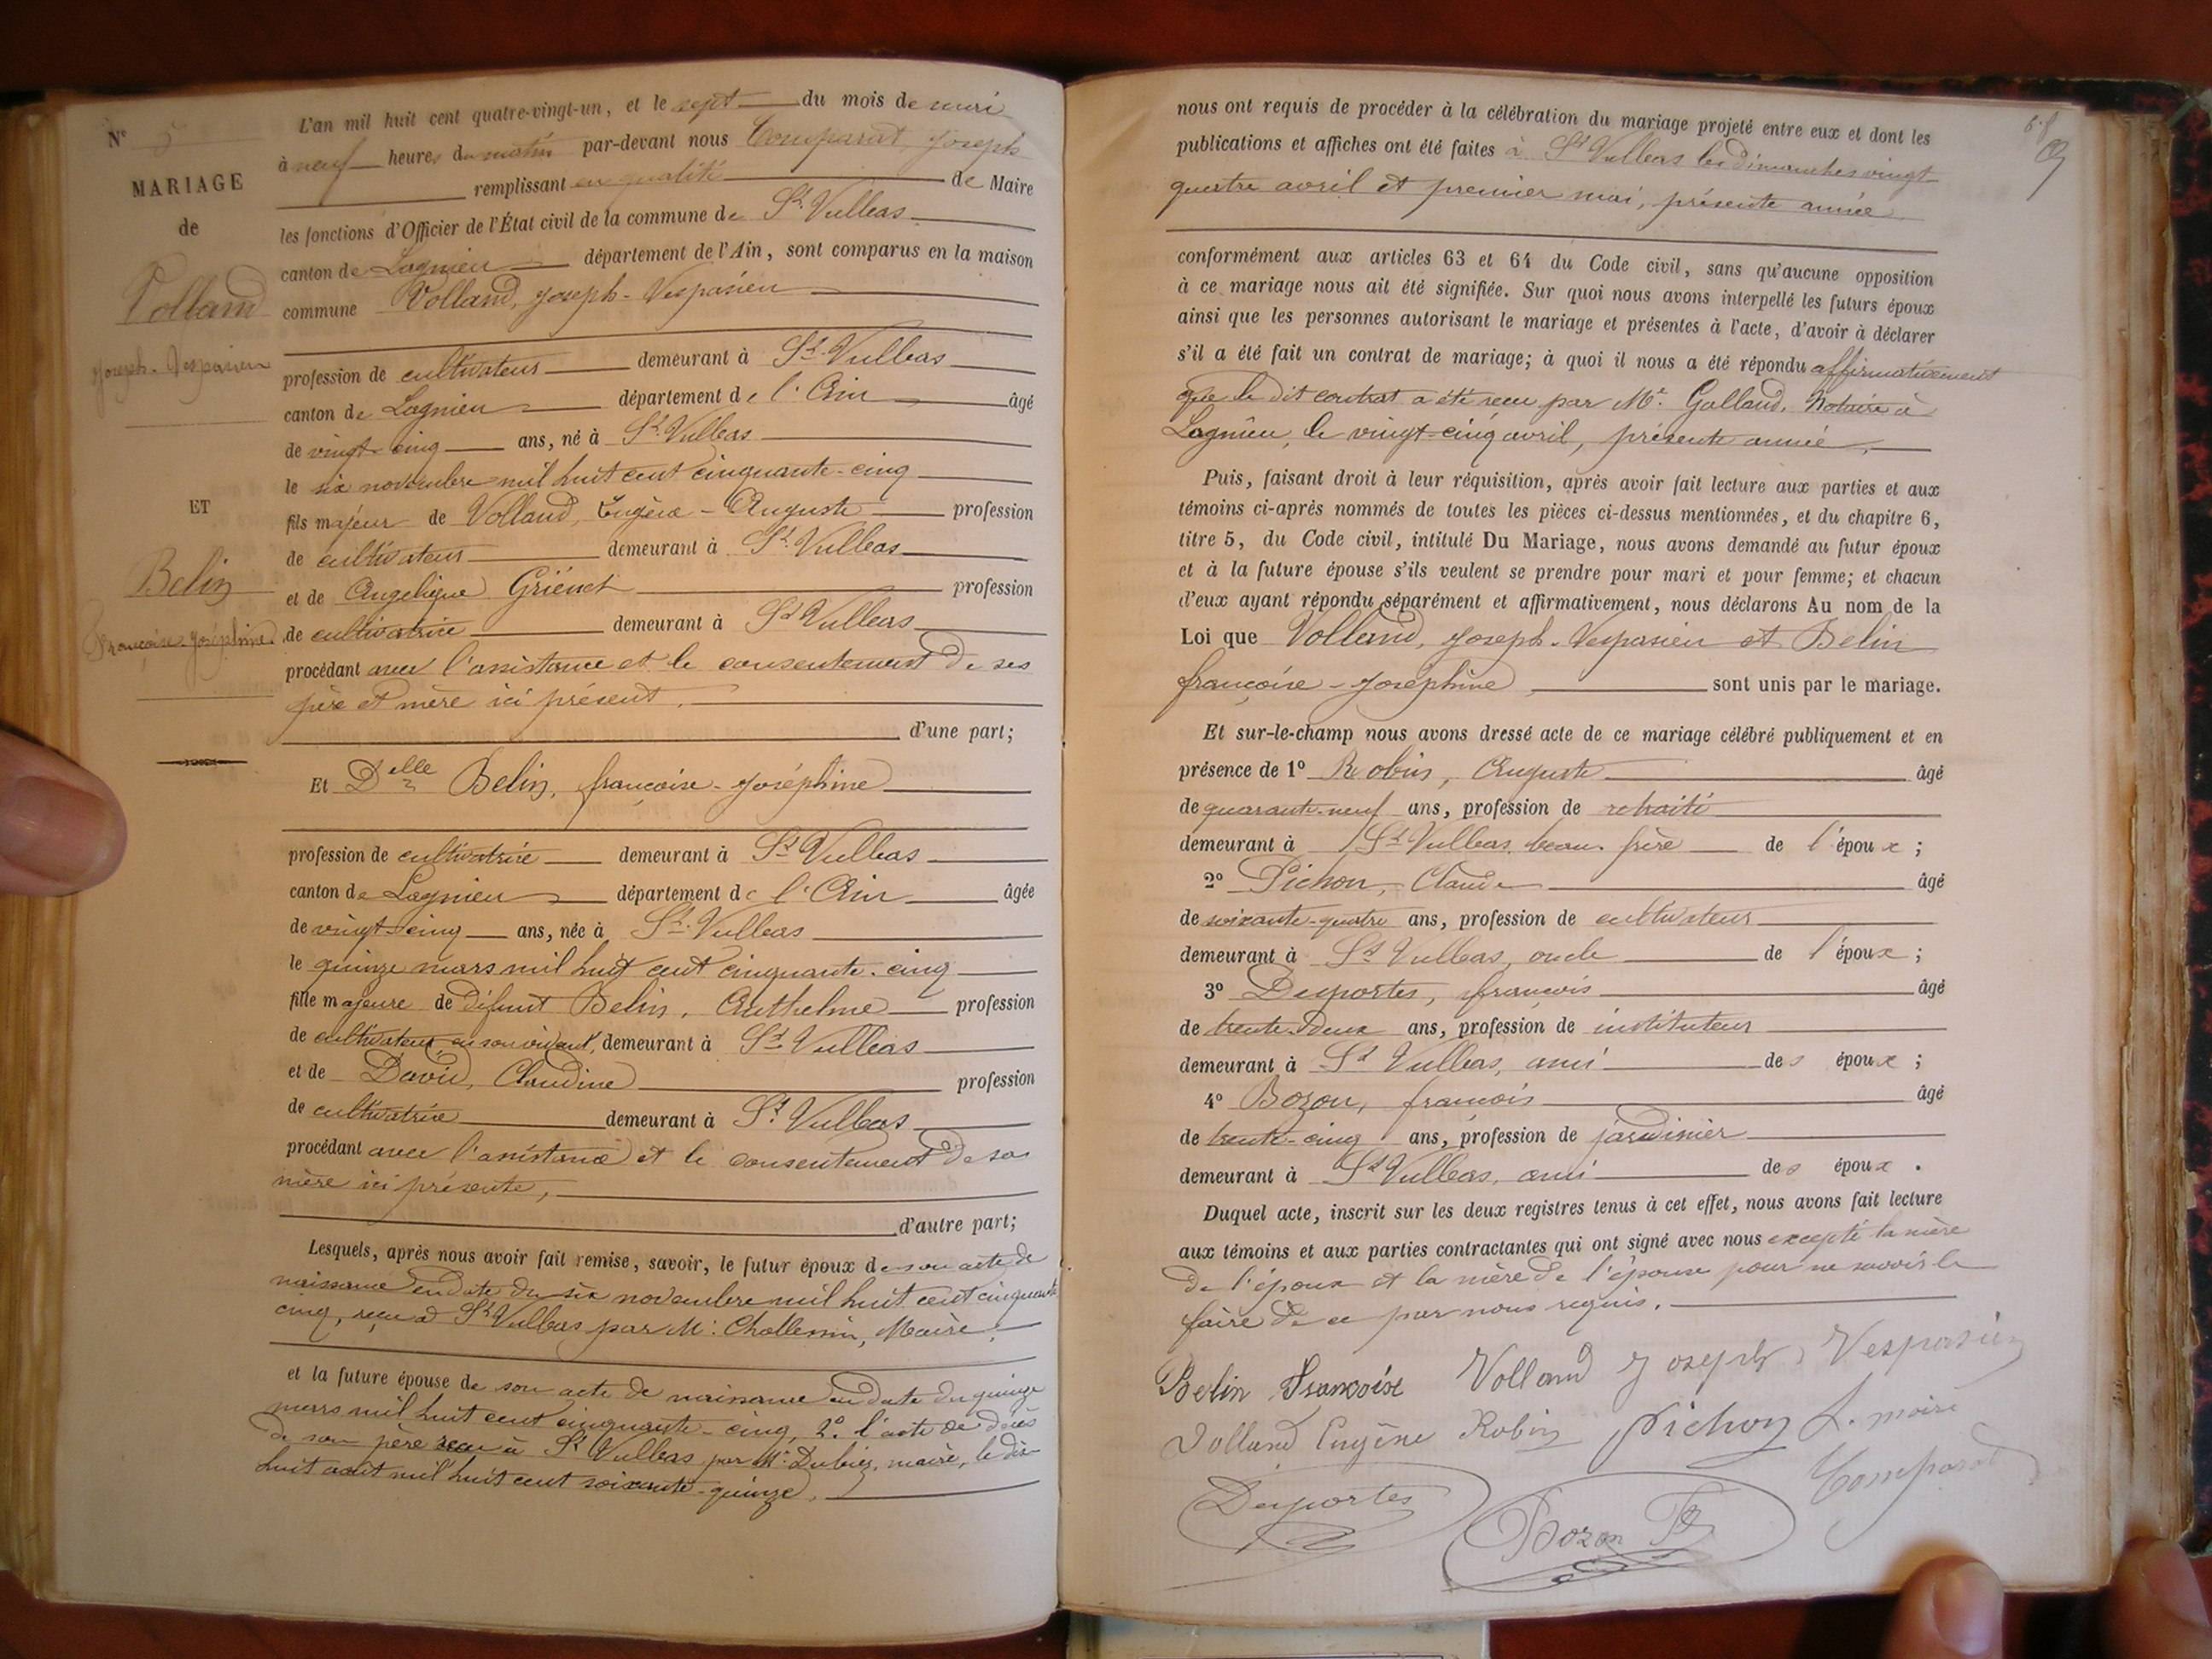 N° 5
MARIAGE
de
Volland
Joseph-Vespasien
ET
Belin
Françoise-Joséphine.
L'an mil huit cent quatre-vingt-un, et le sept du mois de mai
à neuf heures du matin par-devant nous Comparat, Joseph
remplissant en qualité de Maire
les fonctions d'Officier de l'État civil de la commune de St. Vulbas
canton de Lagnieu département de l'Ain, sont comparus en la maison
commune Volland, Joseph-Vespasien
profession de cultivateur demeurant à St. Vulbas
canton de Lagnieu département de l'Ain âgé
de vingt-cinq ans, né à St. Vulbas
le six novembre mil huit cent cinquante-cinq
fils majeur de Volland, Eugène-Auguste profession
de cultivateur demeurant à St. Vulbas
et de Angelique profession
de cultivatrice demeurant à St Vulbas
procédant avec l'assistance et le consentement de ses
père et mère ici présent.
d'une part;
Et Delle Belin, françoise-Joséphine
profession de cultivatrice demeurant à St Vulbas
canton de Lagnieu département de l'Ain âgée
de vingt-cinq ans, née à St. Vulbas
le quinze mars mil huit cent cinquante-cinq
fille majeure de défunt Belin, Anthelme profession
de cultivateur en son vivant, demeurant à St Vulbas
et de David, Claudine profession
de cultivatrice demeurant à St. Vulbas
procédant avec l'assistance et le consentement de sa
mère ici présente,
d'autre part;
Lesquels, après nous avoir fait remise, savoir, le futur époux de son acte de
naissance en date du six novembre mil huit cent cinquante
cinq, reçu à St Vulbas par Mr. Maire,
et la future épouse de son acte de naissance en date du quinze
mars mil huit cent cinquante-cinq, 2° l'acte de décès
de son père reçu à St Vulbas par Mr. maire, le dix-
huit août mil huit cent soixante-quinze.
nous ont requis de procéder à la célébration du mariage projeté entre eux et dont les
publications et affiches ont été faites à St Vulbas les dimanches vingt
quatre avril et premier mai, présente année
conformément aux articles 63 et 64 du Code civil, sans qu'aucune opposition
à ce mariage nous ait été signifiée. Sur quoi nous avons interpellé les futurs époux
ainsi que les personnes autorisant le mariage et présentes à l'acte, d'avoir à déclarer
s'il a été fait un contrat de mariage; à quoi il nous a été répondu affirmativement
que le dit contrat a été reçu par Me. Galland, Notaire à
Lagnieu, le vingt-cinq avril, présente année.
Puis, faisant droit à leur réquisition, après avoir fait lecture aux parties et aux
témoins ci-après nommés de toutes les pièces ci-dessus mentionnées, et du chapitre 6,
titre 5, du Code civil, intitulé Du Mariage, nous avons demandé au futur époux
et à la future épouse s'ils veulent se prendre pour mari et pour femme; et chacun
d'eux ayant répondu séparément et affirmativement, nous déclarons Au nom de la
Loi que Volland, Joseph-Vespasien et Belin
françoise-Joséphine sont unis par le mariage.
Et sur-le-champ nous avons dressé acte de ce mariage célébré publiquement et en
présence de 1° Robin, Auguste âgé
de quarante-neuf ans, profession de retraité
demeurant à St Vulbas, beau-frère de l'époux;
2° Pichon, Claude âgé
de soixante-quatre ans, profession de cultivateur
demeurant à St Vulbas, oncle de l'époux;
3° Desportes, françois âgé
de trente-deux ans, profession de instituteur
demeurant à St Vulbas, ami des époux;
4° Bozon, françois âgé
de trente-cinq ans, profession de jardinier
demeurant à St Vulbas, ami des époux.
Duquel acte, inscrit sur les deux registres tenus à cet effet, nous avons fait lecture
aux témoins et aux parties contractantes qui ont signé avec nous excepté la mère
de l'époux et la mère de l'épouse pour ne savoir le
faire de ce par nous requis.
Belin Françoise Volland Joseph Vespasien
Volland Eugène Robin Pichon L. maire
Desportes Bozon Comparat